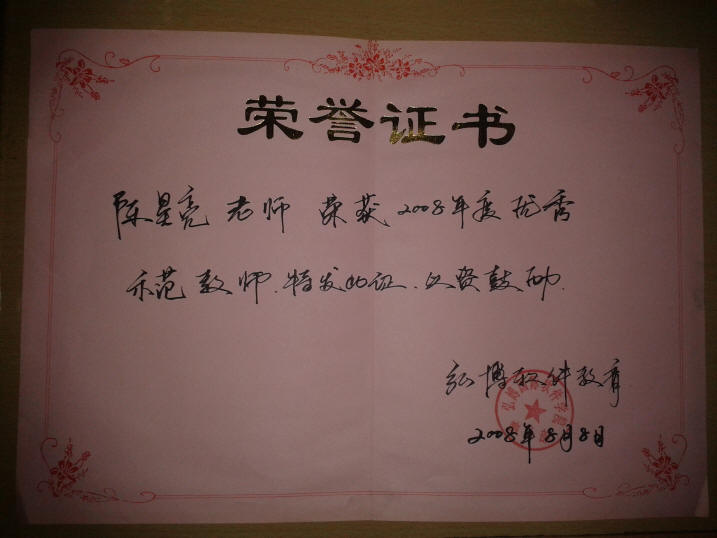 荣誉证书
陈星亮老师 荣获2008年度优秀
示范教师.特发此证.以资鼓励.
弘博软件教育
2008年8月8日